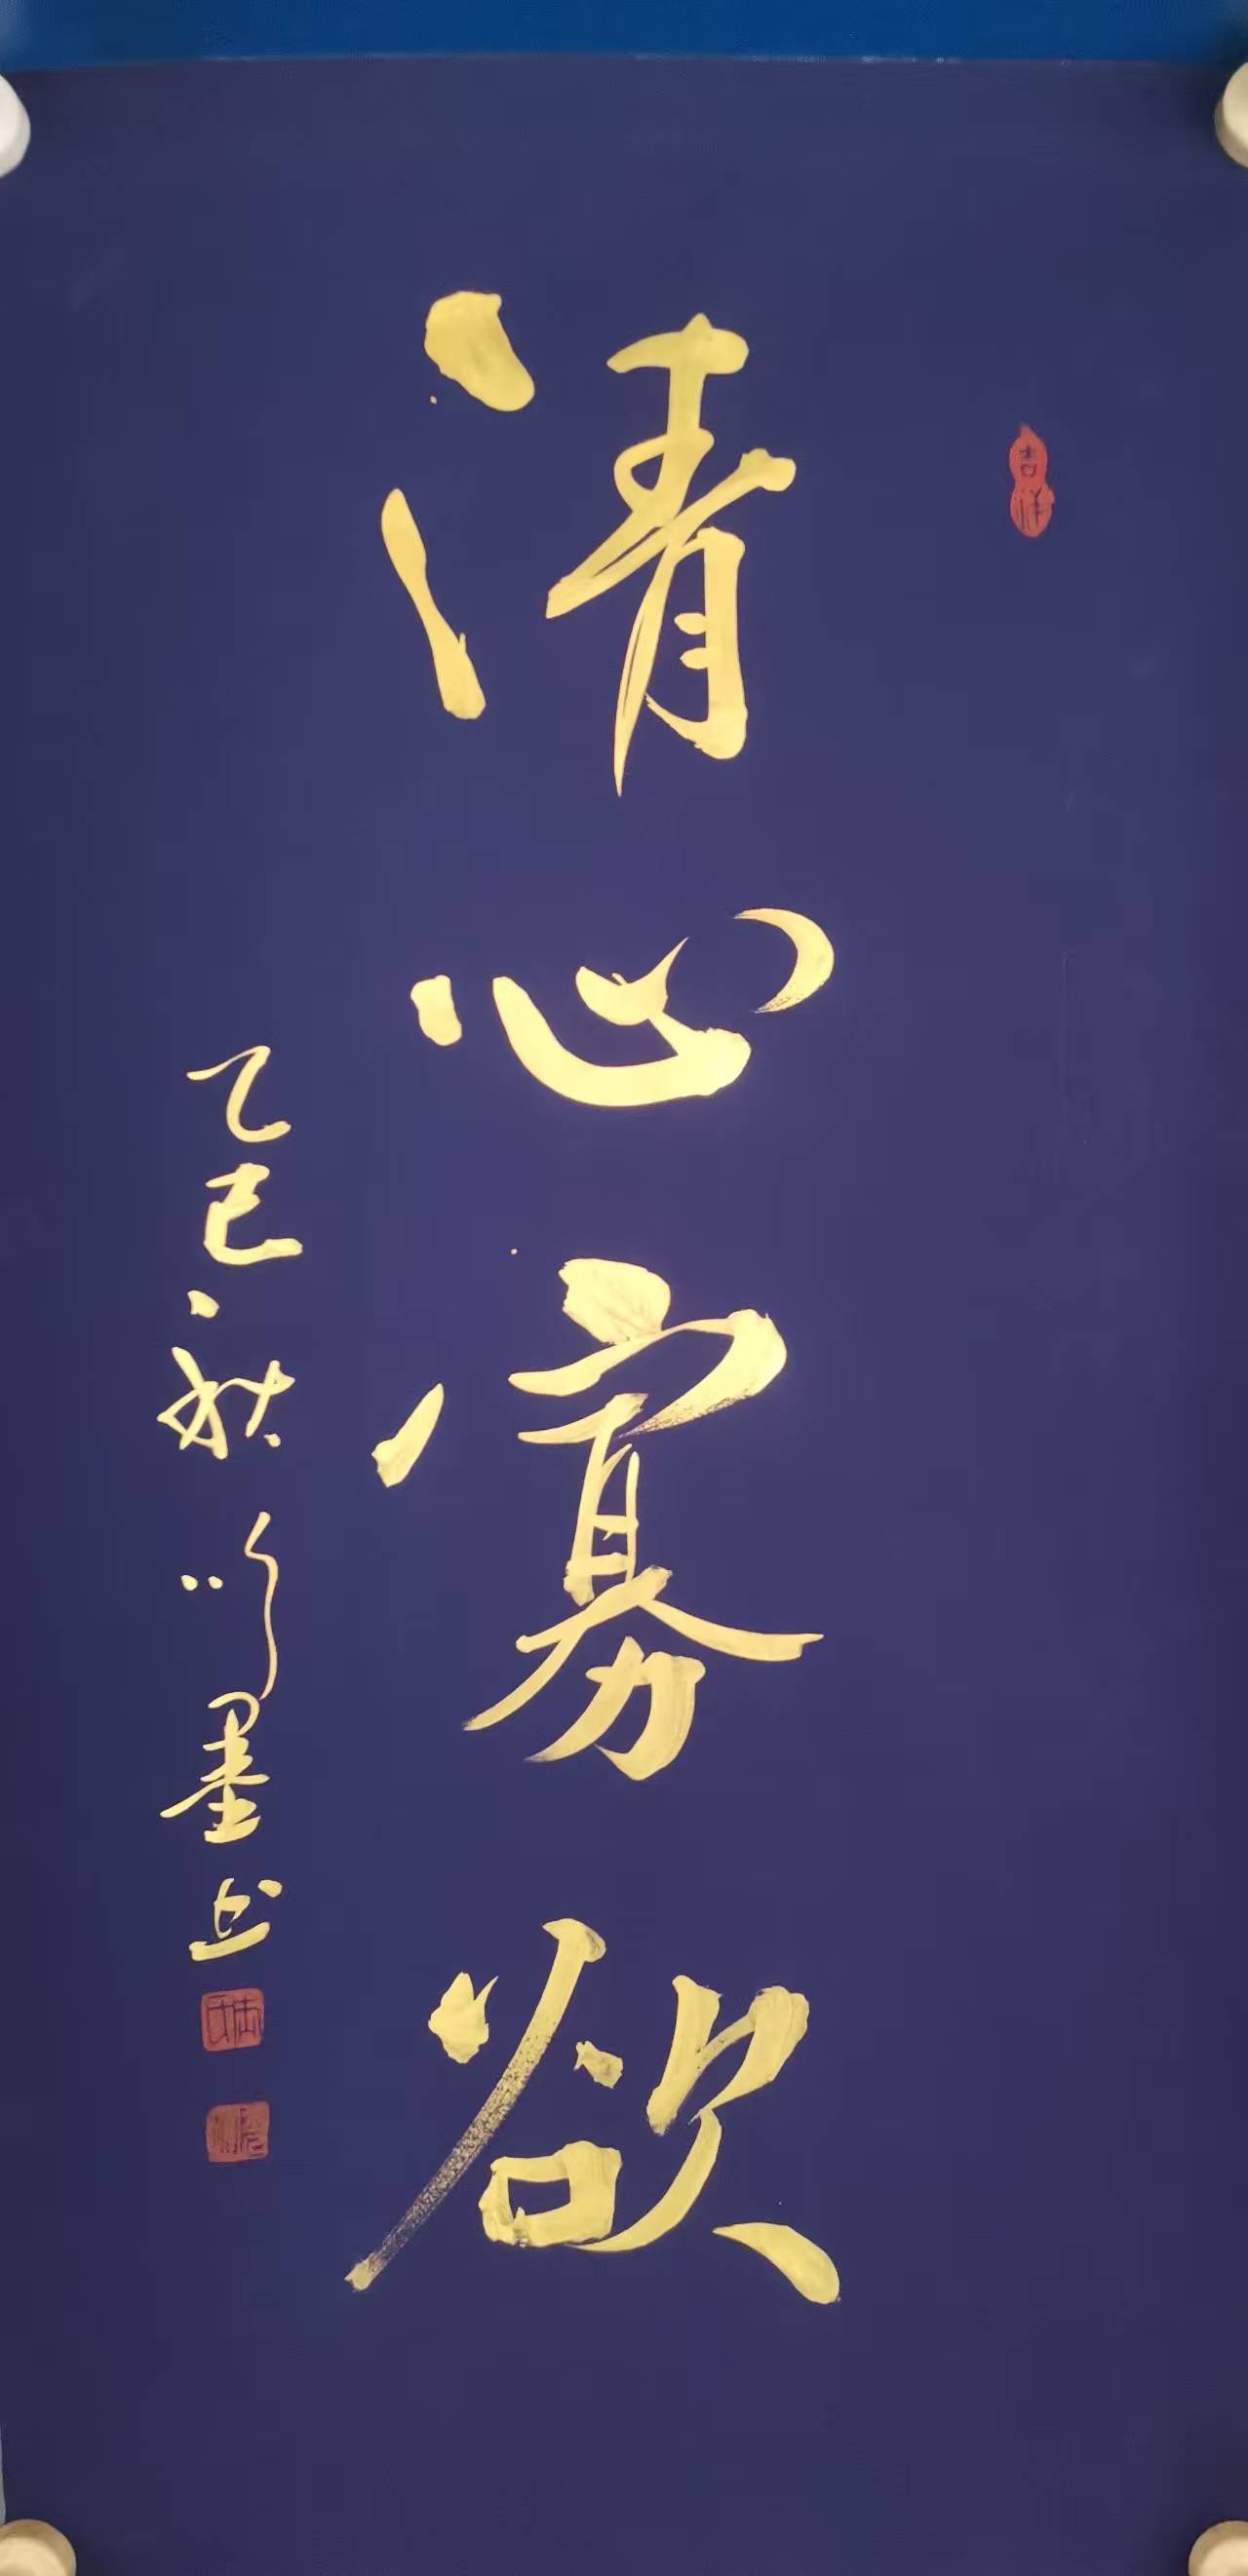 吉祥
清心寡欲
乙巳秋
墨